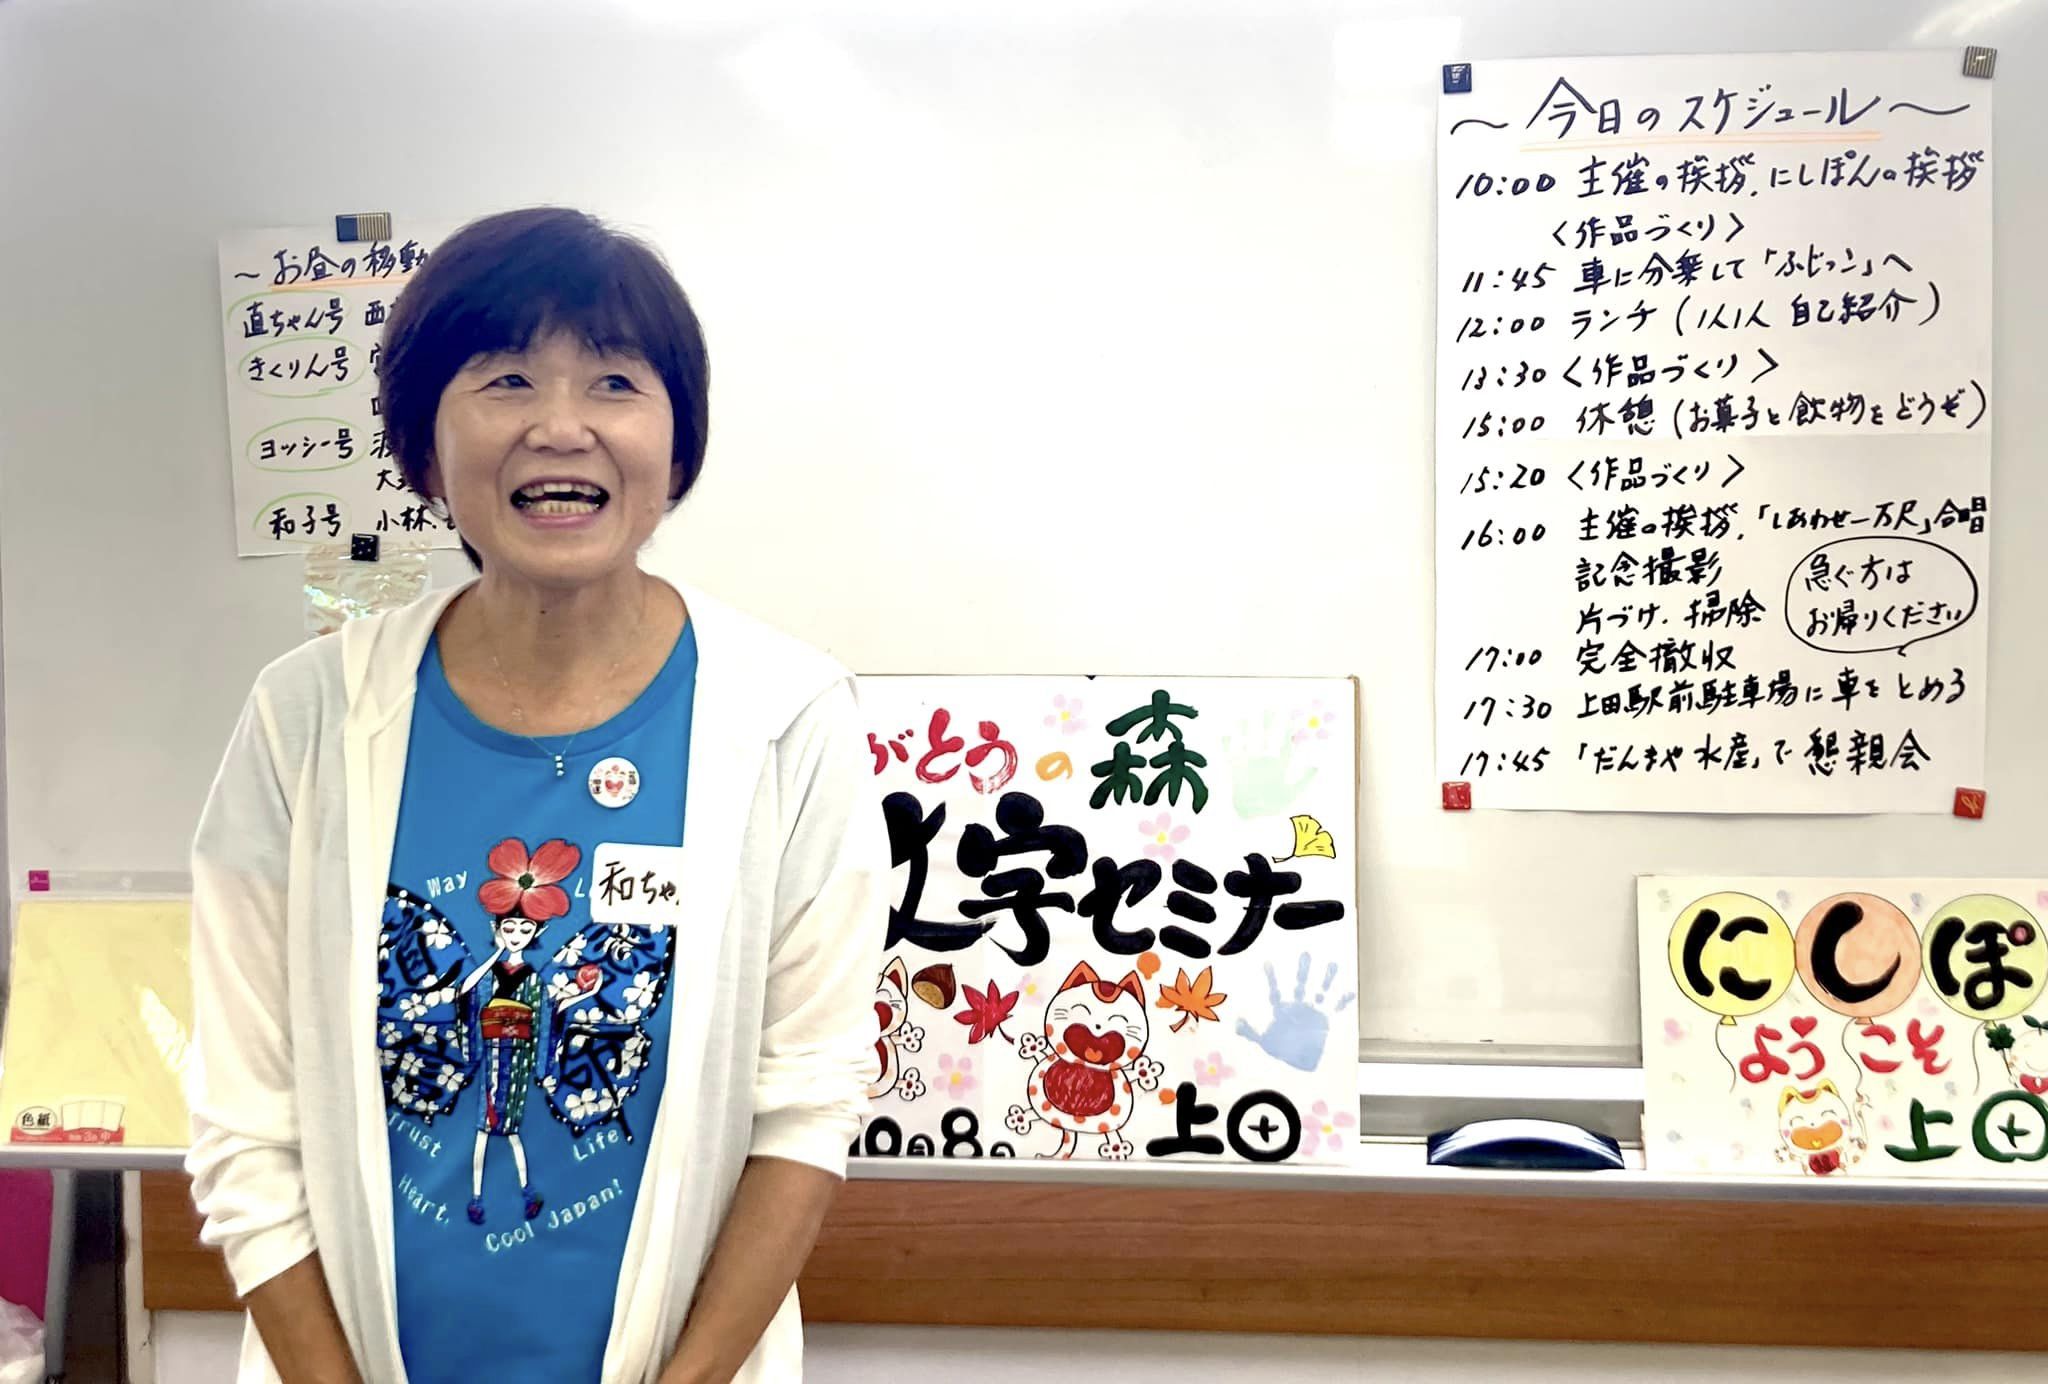 ～お昼の移動
直ちゃん号 西
きくりん号
ヨッシー号
大
和子号 小林.
～今日のスケジュール～
10:00 主催の挨拶、にしぽんの挨拶
〈作品づくり〉
11:45 車に分乗して「ふじっこ」へ
12:00 ランチ(1人1人 自己紹介)
13:30〈作品づくり〉
15:00 休憩(お菓子と飲物をどうぞ)
15:20〈作品づくり〉
16:00 主催の挨拶、「しあわせ一万尺」合唱
記念撮影
片づけ、掃除
急ぐ方は
お帰りください
17:00 完全撤収
17:30 上田駅前駐車場に車をとめる
17:45「だんまや水産」で懇親会
がとうの森
文字セミナー
10月8日
上田
にしぽ
ようこそ
上田
和ちゃ
Way
L
道
信
命
Trust
Life
Heart,
Cool Japan!
色紙